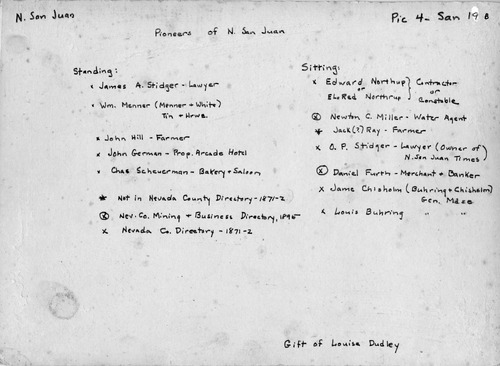 N. San Juan
Pic 4- San 19 B
Pioneers of N. San Juan
Standing:
x James A. Stidger - Lawyer
x Wm. Menner (Menner + White)
Tin + Hrwe.
x John Hill - Farmer
x John German - Prop. Arcade Hotel
x Chas Scheuerman - Bakery + Saloon
* Not in Nevada County Directory - 1871-2
ⓧ Nev. Co. Mining + Business Directory, 1895
x Nevada Co. Directory - 1871-2
Sitting:
x Edward Northup } Contractor
or } or
Northrup } Constable
ⓧ Newton C. Miller - Water Agent
* Jack(?) Ray - Farmer
x O. P. Stidger - Lawyer (Owner of
N. San Juan Times)
ⓧ Daniel Furth - Merchant + Banker
x Jame Chisholm (Buhring + Chisholm)
Gen. Mdse
x Louis Buhring " "
Gift of Louise Dudley